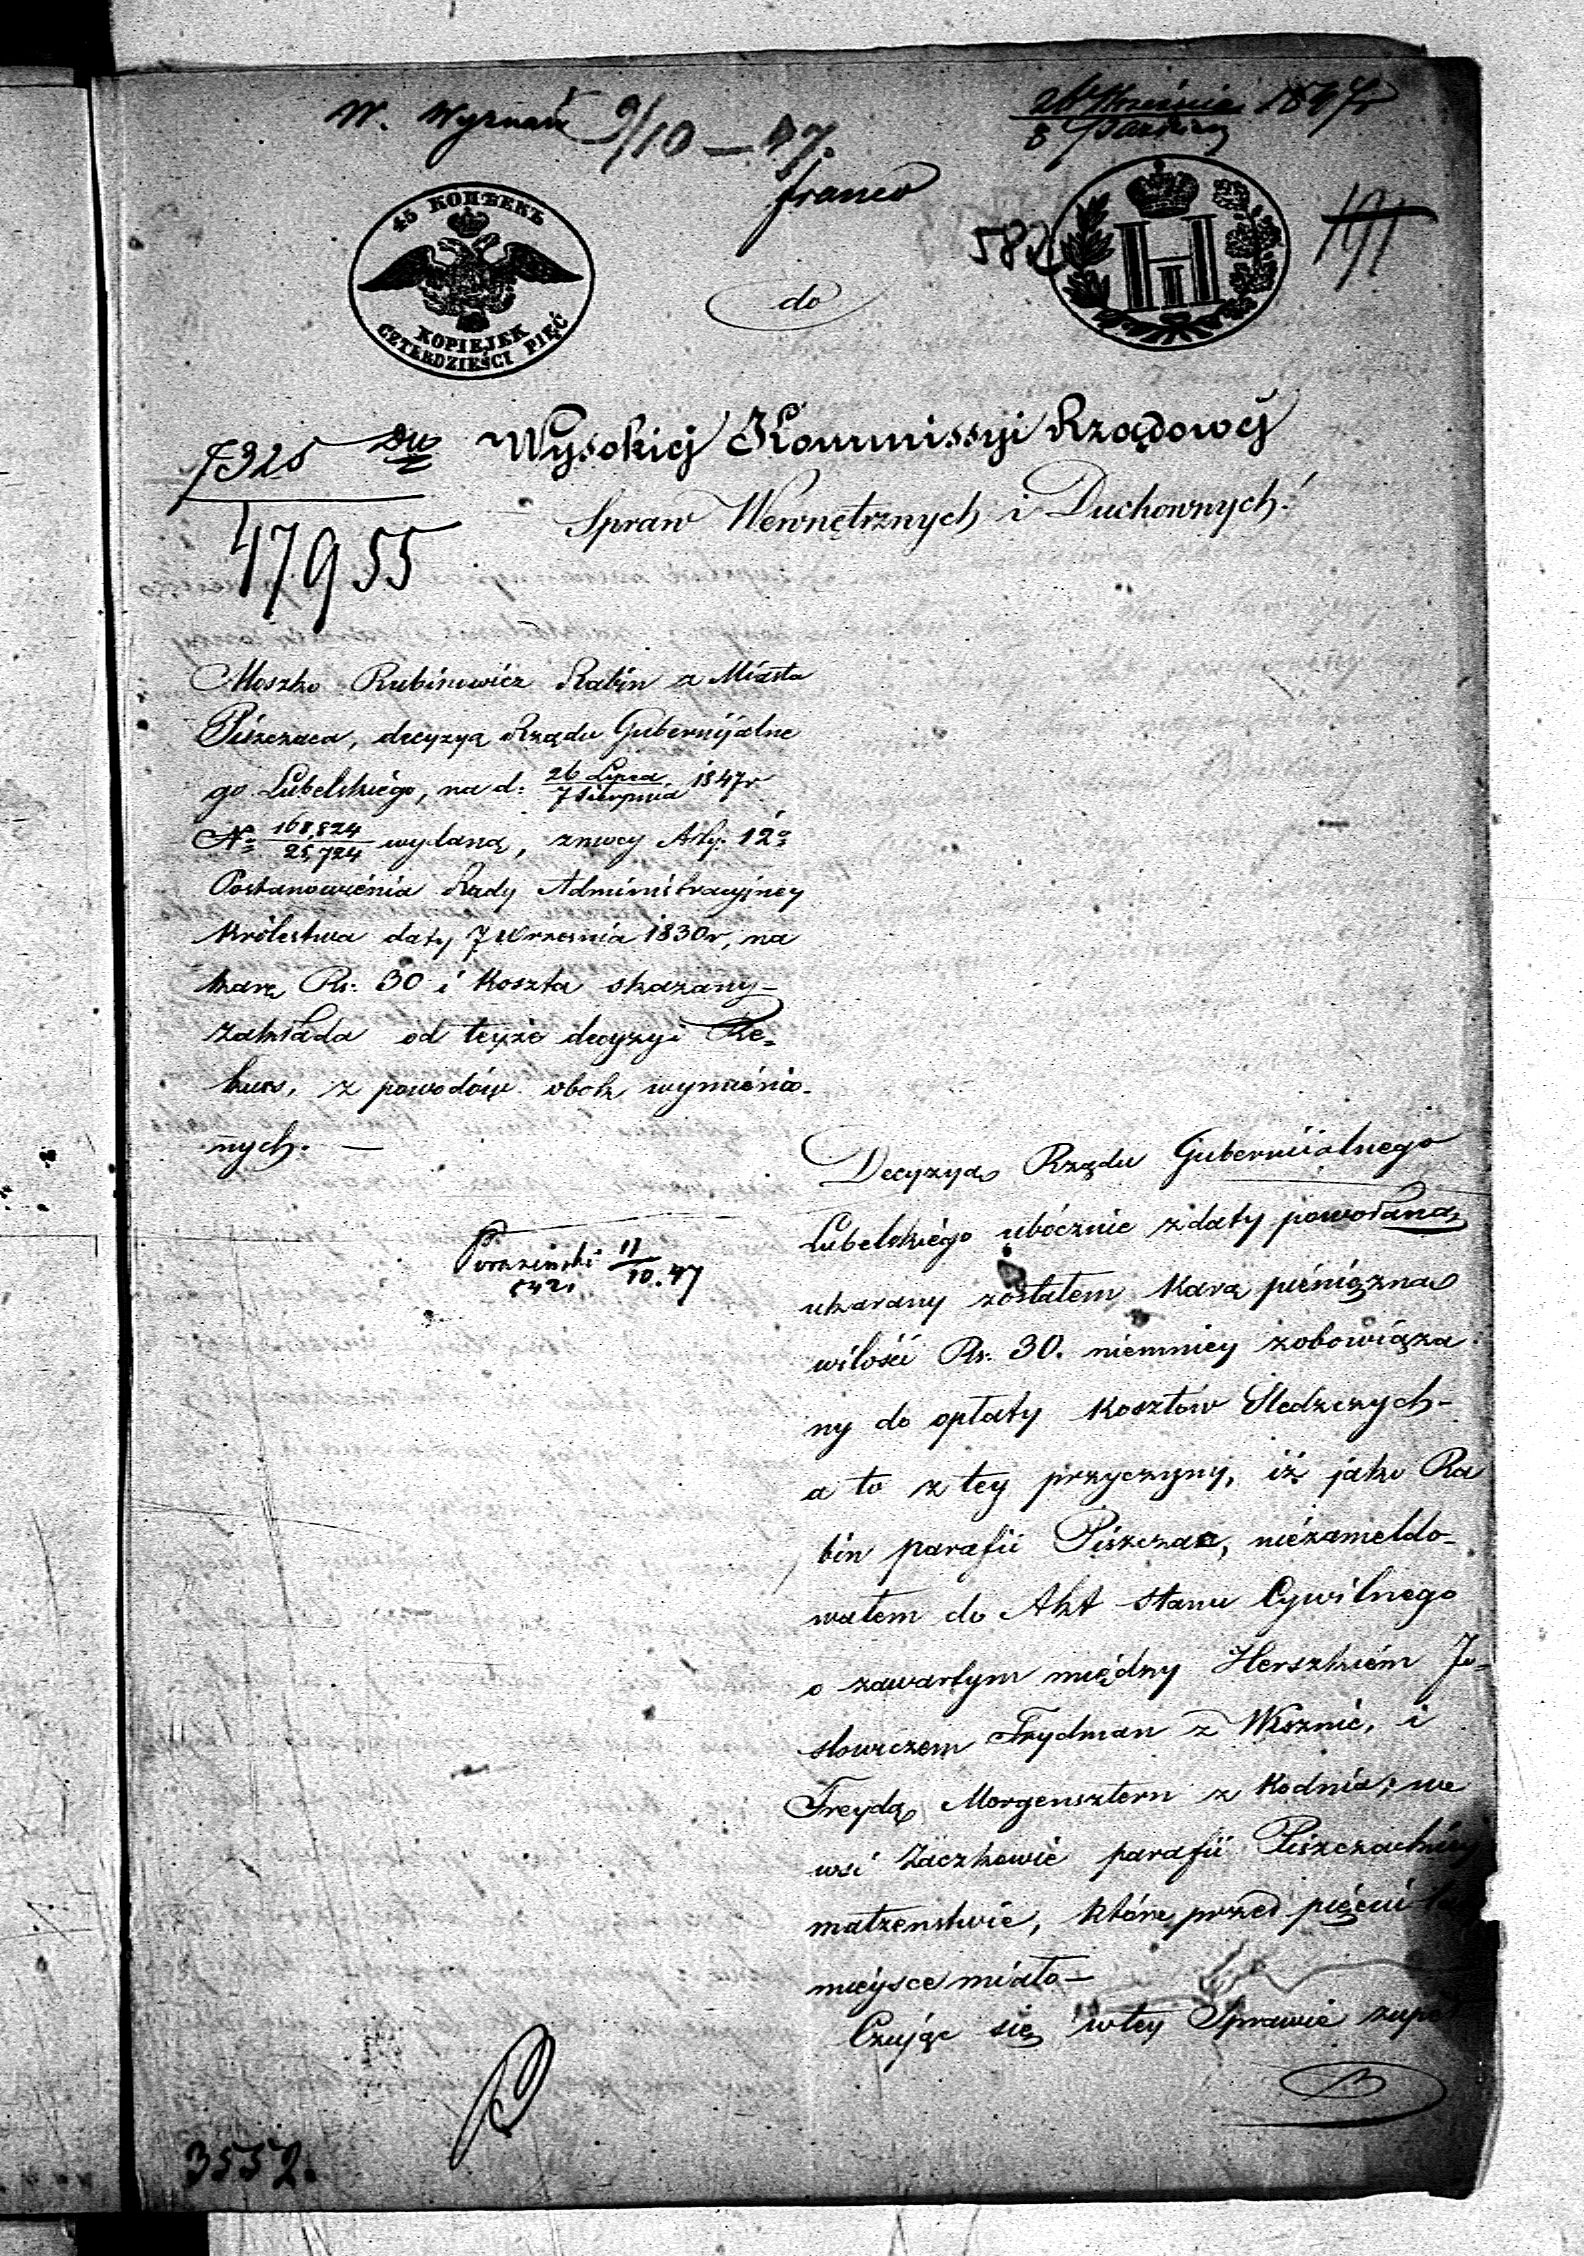 W. Wyznań 9/10 – 47.
26 Września 1847r
8 Paźdźier
franco
45 КОПѢЕКЪ
KOPIEJEK
CZTERDZIEŚCI PIĘĆ
582
191
do
Wysokiej Kommissyi Rządowej
Spraw Wewnętrznych i Duchownych!
7325
47955
Moszko Rubinowicz Rabin z Miasta
Piszczaca, decyzyą Rządu Gubernijalne
go Lubelskiego, na d: 26 Lipca / 7 Sierpnia 1847r
No 168,824 / 25,724 wydaną, zmocy Arty: 12o
Postanowienia Rady Administracyjney
Królestwa daty 7 Września 1830r, na
karę Rs: 30 i koszta skazany–
zakłada od teyże decyzyi Re=
kurs, z powodów obok wymienio-
nych. —
11/10. 47
Decyzyą Rządu Gubernialnego
Lubelskiego ubócznie z daty powołaną
ukarany zostałem karą pieniężną
wilości Rs: 30. niemniey zobowiąza
ny do opłaty kosztów Śledczych–
a to z tey przyczyny, iż jako Ra
bin parafii Piszczac, niezameldo-
wałem do Akt Stanu Cywilnego
o zawartym między Herszkiem Jo=
slowiczem Frydman z Wisznic, i
Freydą Morgensztern z Kodnia; we
wsi Zaczkowie parafii Piszczackiej
małzenstwie, które przed pięciu laty
mieysce miało–
Czując się wtey Sprawie zupeł
3552.